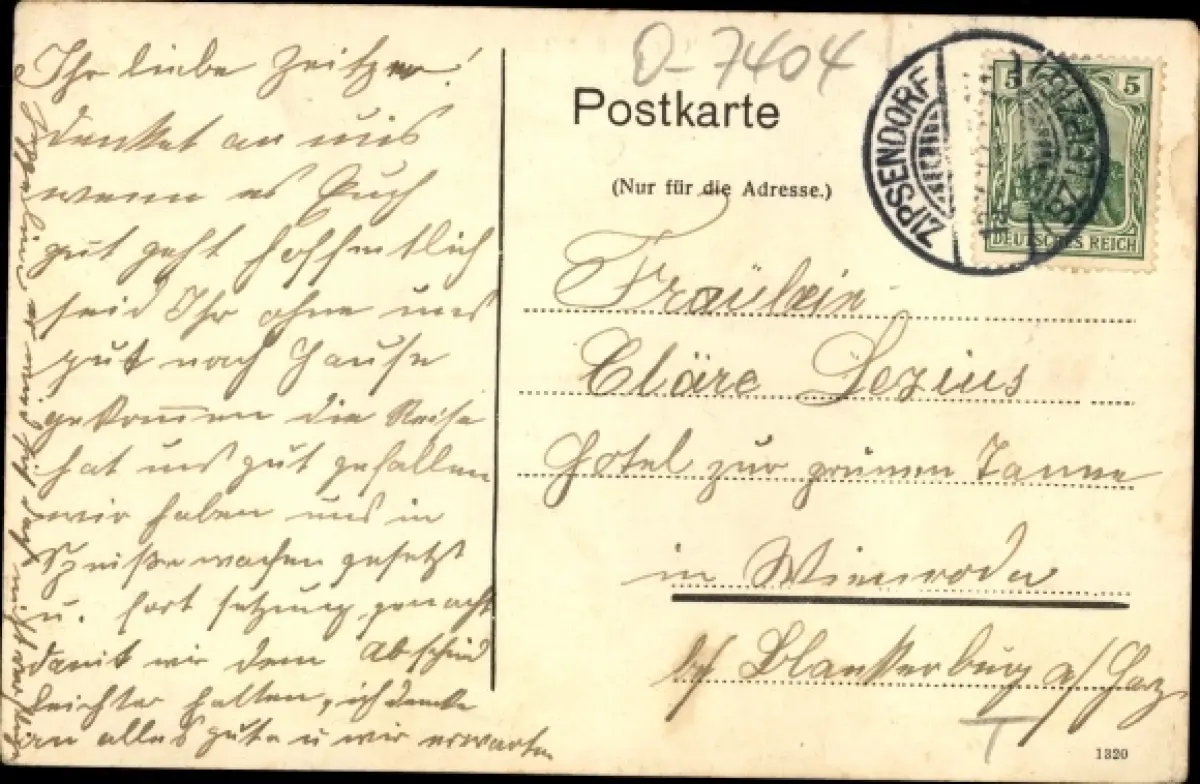 Ihr liebe Zeitzer!
denket an uns
wenn es Euch
gut geht hoffentlich
seid Ihr ohne uns
gut nach Hause
gekommen die Reise
hat uns gut gefallen
wir haben uns in
Speisewachen gesetzt
u. fort setzung gemacht
damit wir dem Abschied
leichter halten, ich denke
an alles gute u wir erwarten
O-7404
Postkarte
(Nur für die Adresse.)
ZIPSENDORF
5 5
DEUTSCHES REICH
Fräulein
Cläre Lezius
Hotel zur grünen Tanne
in Wienroda
b/ Blankerburg a/Harz
T
1320